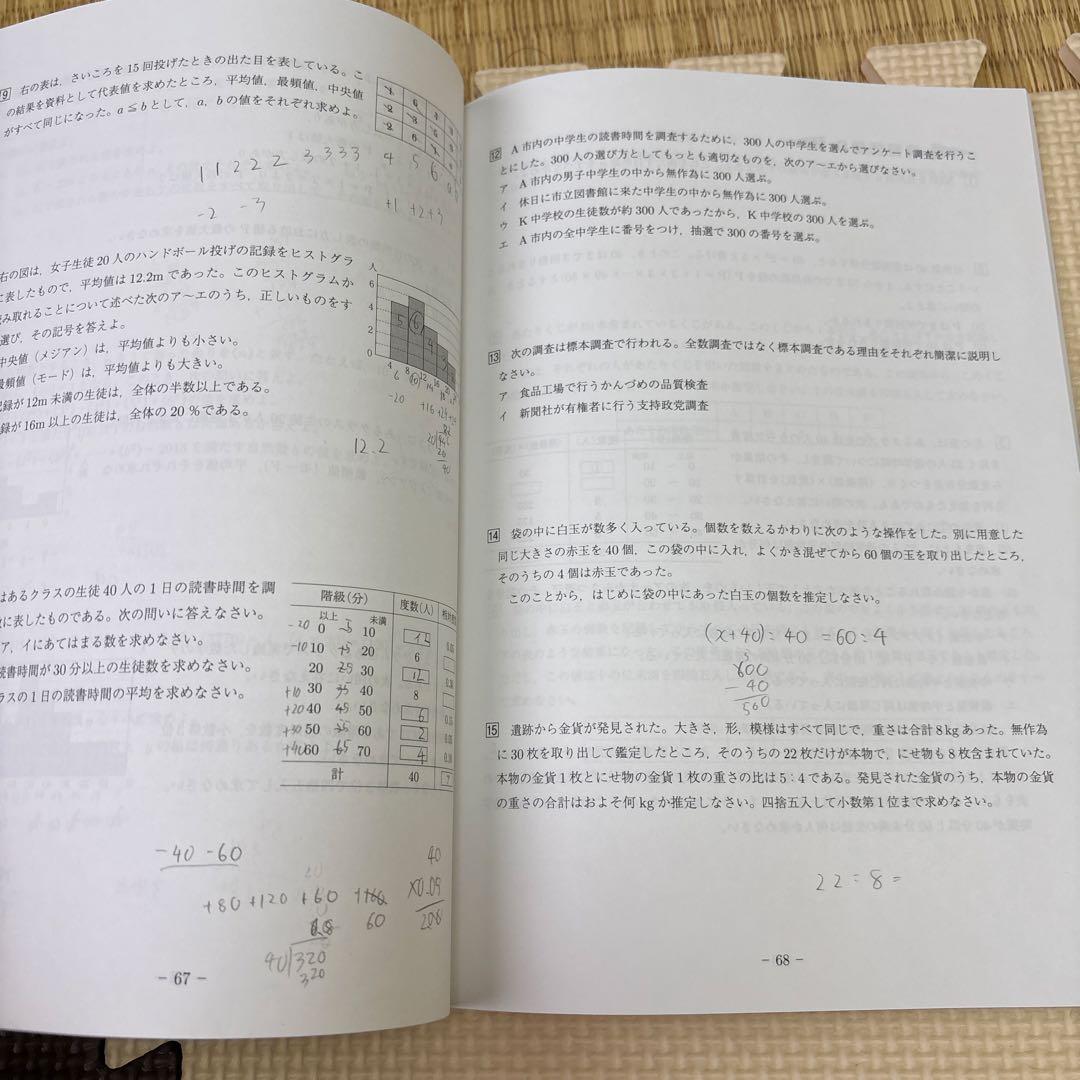 9 右の表は，さいころを15回投げたときの出た目を表している。こ
の結果を資料として代表値を求めたところ，平均値，最頻値，中央値
がすべて同じになった。a≦bとして，a，bの値をそれぞれ求めよ。
1 1 2 2 2 3 3 3 3 4 5 6
-2 -3 +1 +2+3
右の図は，女子生徒20人のハンドボール投げの記録をヒストグラ
に表したもので，平均値は12.2mであった。このヒストグラムか
読み取れることについて述べた次のア～エのうち，正しいものをす
選び，その記号を答えよ。
中央値（メジアン）は，平均値よりも小さい。
最頻値（モード）は，平均値よりも大きい。
記録が12m未満の生徒は，全体の半数以上である。
録が16m以上の生徒は，全体の20％である。
人
6
4
2
0
5 6 4 3
4 8 12 16
6 10 14
-20
12.2
はあるクラスの生徒40人の1日の読書時間を調
に表したものである。次の問いに答えなさい。
ア，イにあてはまる数を求めなさい。
読書時間が30分以上の生徒数を求めなさい。
ラスの1日の読書時間の平均を求めなさい。
階級（分） 度数（人） 相対
以上 未満
-20 0 5 10
-10 10 15 20 6
20 25 30 12
+10 30 35 40 8
+20 40 45 50 6
+30 50 55 60 2
+40 60 65 70 4
計 40
-40 -60
+80 +120 +60
60
40
×0.05
40 320
320
－ 67 －
12 A市内の中学生の読書時間を調査するために，300人の中学生を選んでアンケート調査を行うこ
とにした。300人の選び方としてもっとも適切なものを，次のア～エから選びなさい。
ア A市内の男子中学生の中から無作為に300人選ぶ。
イ 休日に市立図書館に来た中学生の中から無作為に300人選ぶ。
ウ K中学校の生徒数が約300人であったから，K中学校の300人を選ぶ。
エ A市内の全中学生に番号をつけ，抽選で300の番号を選ぶ。
13 次の調査は標本調査で行われる。全数調査ではなく標本調査である理由をそれぞれ簡潔に説明し
なさい。
ア 食品工場で行うかんづめの品質検査
イ 新聞社が有権者に行う支持政党調査
14 袋の中に白玉が数多く入っている。個数を数えるかわりに次のような操作をした。別に用意した
同じ大きさの赤玉を40個，この袋の中に入れ，よくかき混ぜてから60個の玉を取り出したところ，
そのうちの4個は赤玉であった。
このことから，はじめに袋の中にあった白玉の個数を推定しなさい。
(x+40):40 =60:4
5
600
- 40
560
15 遺跡から金貨が発見された。大きさ，形，模様はすべて同じで，重さは合計8kgあった。無作為
に30枚を取り出して鑑定したところ，そのうちの22枚だけが本物で，にせ物も8枚含まれていた。
本物の金貨1枚とにせ物の金貨1枚の重さの比は5：4である。発見された金貨のうち，本物の金貨
の重さの合計はおよそ何kgか推定しなさい。四捨五入して小数第1位まで求めなさい。
22:8=
－ 68 －